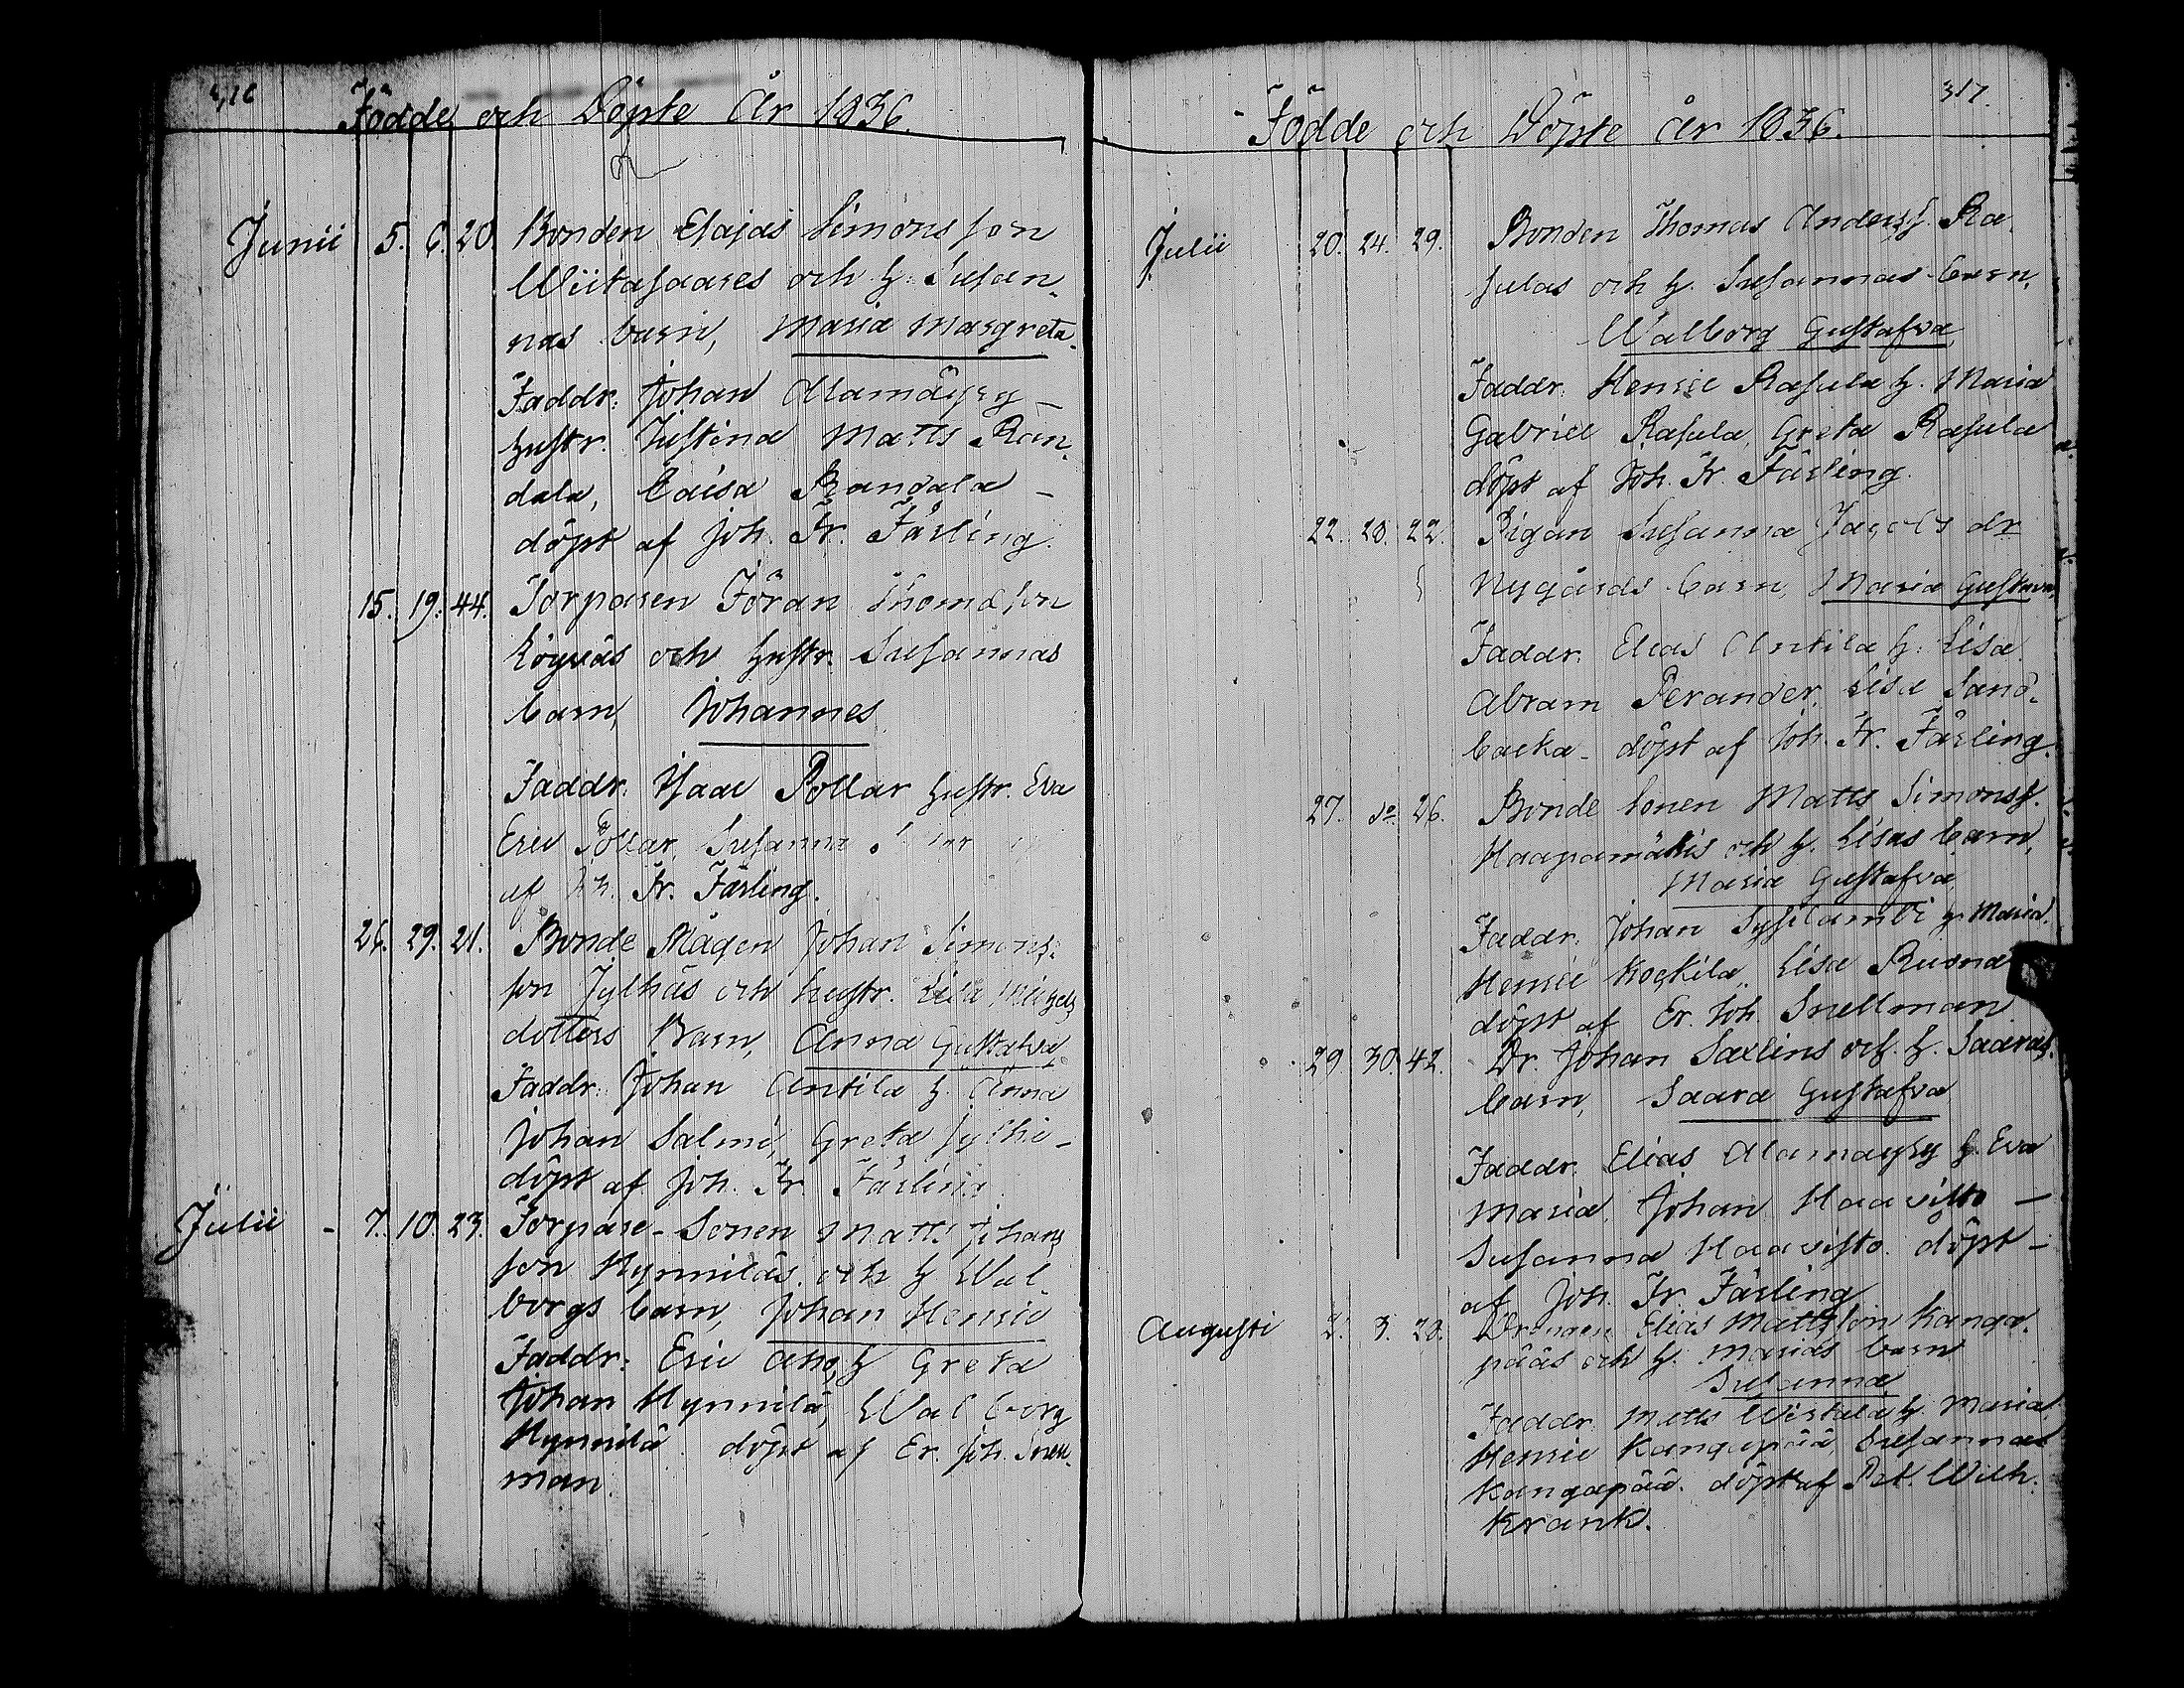 316
Födde och Döpte År 1836.
Junii 5. 6. 20. Bonden Esajas Simonsson
Wiitasaares och h. Susan-
nas barn, Maria Margreta.
Faddr: Johan Alamäysy –
hustr. Justina Matts Ran-
dala, Caisa Randala –
döpt af Joh. Fr. Färling.
15. 19. 44. Torparen Jöran Thomasson
Löyväs och hustr. Susannas
barn, Johannes
Faddr. Isaac Pollar hustr. Eva
Eric Pollar, Susanna
af Joh. Fr. Färling.
26. 29. 21. Bonde Mågen Johan Simons-
son Jylhäs och hustr. Lisa Michels
dotters Barn, Anna Gustafva
Faddr: Johan Antila h. Anna
Johan Salmi, Greta Jylhä –
döpt af Joh. Fr. Färling.
Julii – 7. 10. 23. Torpare-Sonen Matts Johans
son Hynniläs och h Wal
borgs barn, Johan Henric
Faddr: Eric Aho, h Greta
Johan Hynnilä, Walborg
Hynnilä. döpt af Er. Joh. Snell-
man.
317.
Födde och Döpte År 1836.
Julii 20. 24. 29. Bonden Thomas Anderss. Ra-
sulas och h. Susannas barn,
Walborg Gustafva
Faddr: Henric Rasula h. Maria
Gabriel Rasula, Greta Rasula
döpt af Joh. Fr. Färling.
22. 28. 22. Pigan Susanna Jacobs dr
Nygårds barn, Maria Gustava
Faddr: Elias Antila h: Lisa
Abram Perander, Lisa Sand-
backa – döpt af Joh. Fr. Färling.
27. do 26. Bonde Sonen Matts Simonss.
Haapamäkis och h. Lisas barn,
Maria Gustafva
Faddr: Johan Sysilambi h. Maria.
Henric Koskila, Lisa
döpt af Er. Joh. Snellman
29. 30. 42. Dr. Johan Saxlins och h. Saaras
barn, Saara Gustafva
Faddr: Elias Alamäysy h. Eva
Maria, Johan Haavisto –
Susanna Haavisto. döpt –
af Joh. Fr. Färling
Augusti 2. 3. 28. Drengen Elias Mattsson Kanga-
pääs och h. Marias barn
Susanna
Faddr: Matts Wirtala h. Maria
Henric Kangapää, Susannas
Kangapää. döpt af Pet. Wilh.
Krank.